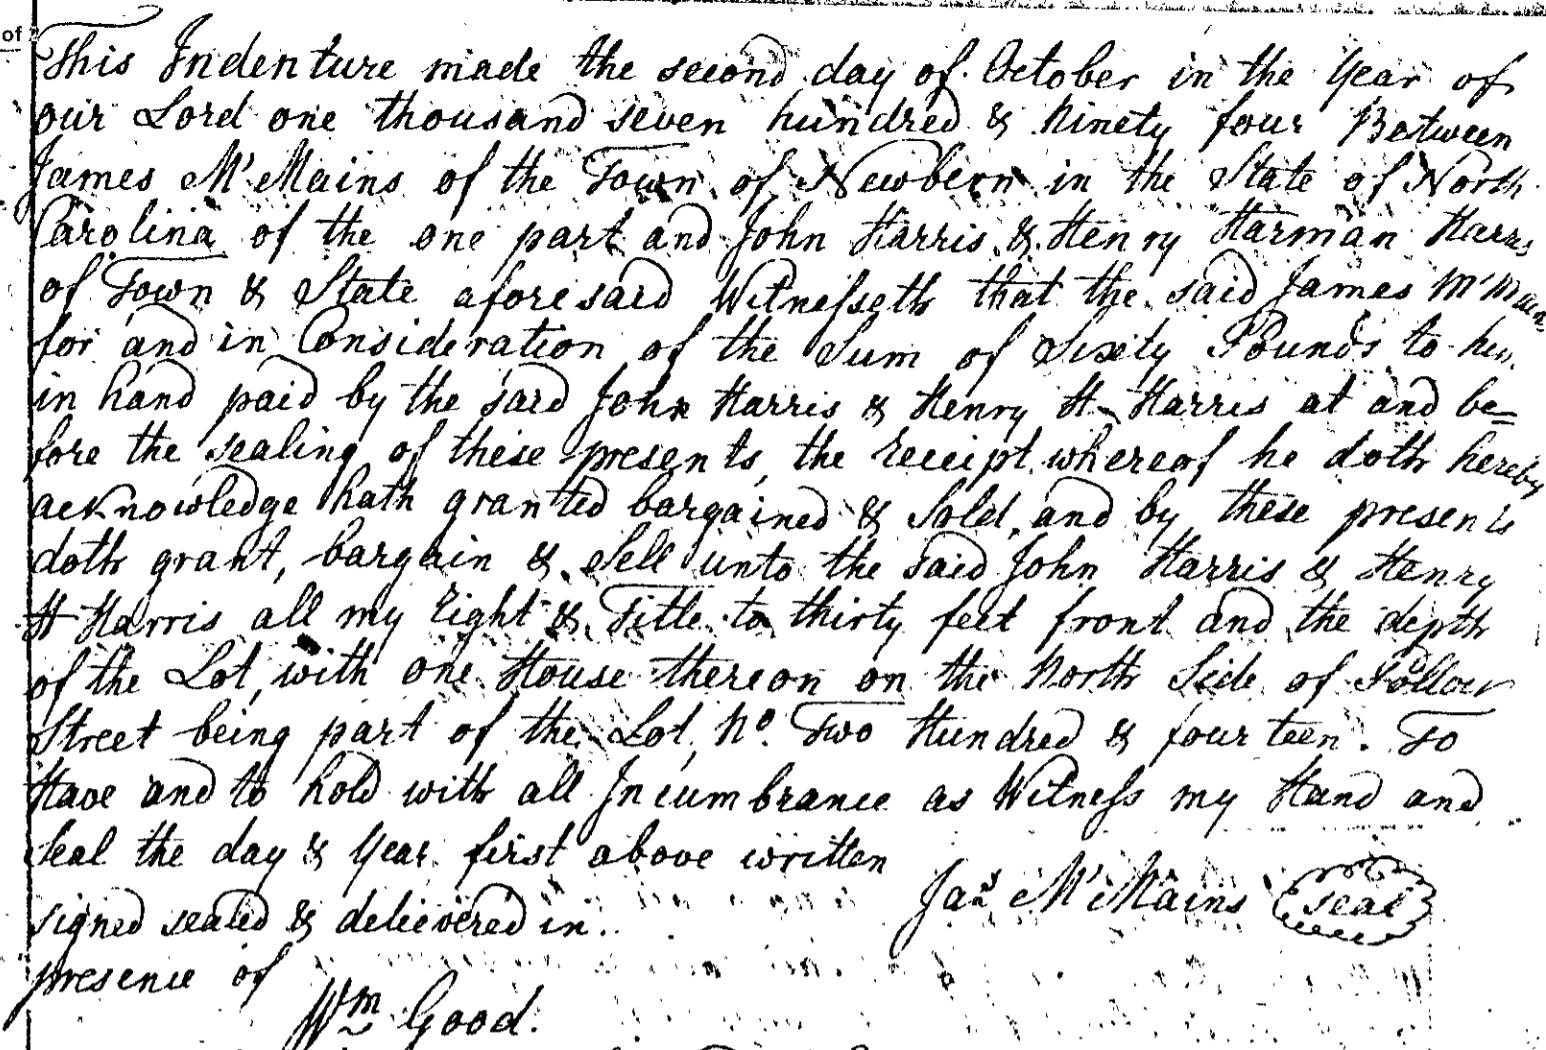 of
This Indenture made the second day of October in the Year of
our Lord one thousand seven hundred & Ninety four Between
James Mc Mains of the Town of Newbern in the State of North
Carolina of the one part and John Harris & Henry Harman Harris
of Town & State aforesaid Witnesseth that the said James McMains
for and in Consideration of the Sum of Sixty Pounds to him
in hand paid by the said John Harris & Henry H. Harris at and be=
fore the sealing of these presents, the receipt whereof he doth hereby
acknowledge hath granted bargained & Sold, and by these presents
doth grant, bargain & Sell unto the said John Harris & Henry
H Harris all my right & Title to thirty feet front and the depth
of the Lot, with one House thereon on the North Side of Pollow
Street being part of the Lot, No. Two Hundred & fourteen. To
Have and to hold with all Incumbrance as Witness my Hand and
Seal the day & Year first above written
Jas Mc Mains seal
signed sealed & delievered in
presence of
Wm Good.